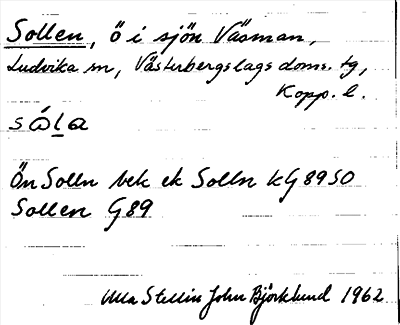 Sollen, ö i sjön Väsman,
Ludvika sn, Västerbergslags doms. tg,
Kopp. l.
sóla
Ön Solln bek ek Solln kG 89 SO
Sollen G89
Ulla Stellin John Björklund 1962